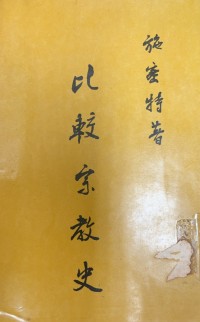 施蜜特著
比較宗教史